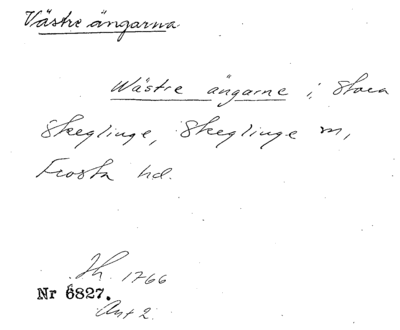 Västre ängarna
Wästre ängarne i Stora
Skeglinge, Skeglinge m,
Frosta hd.
Jh. 1766
Nr 6827.
Akt 2.